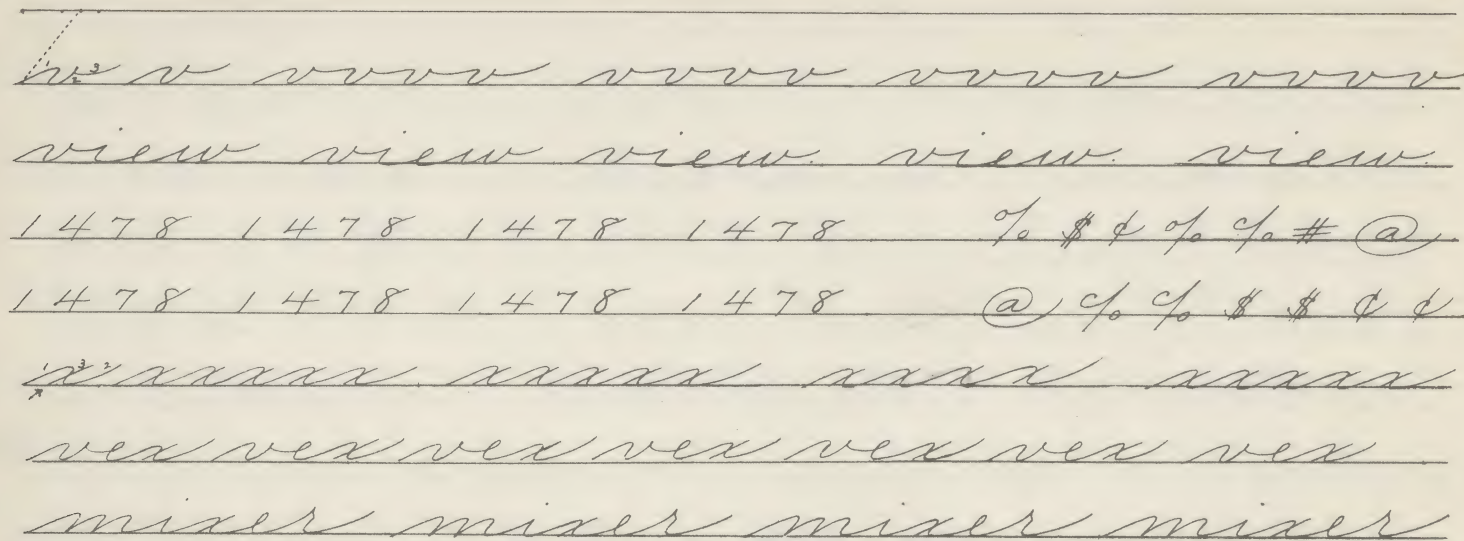 v v vvvv vvvv vvvv vvvv
view view view. view. view.
1 4 7 8 1 4 7 8 1 4 7 8 1 4 7 8 % $ ¢ % % # @
1 4 7 8 1 4 7 8 1 4 7 8 1 4 7 8 @ % % $ $ ¢ ¢
x xxxxx xxxxx xxxx xxxxx
vex vex vex vex vex vex vex
mixer mixer mixer mixer